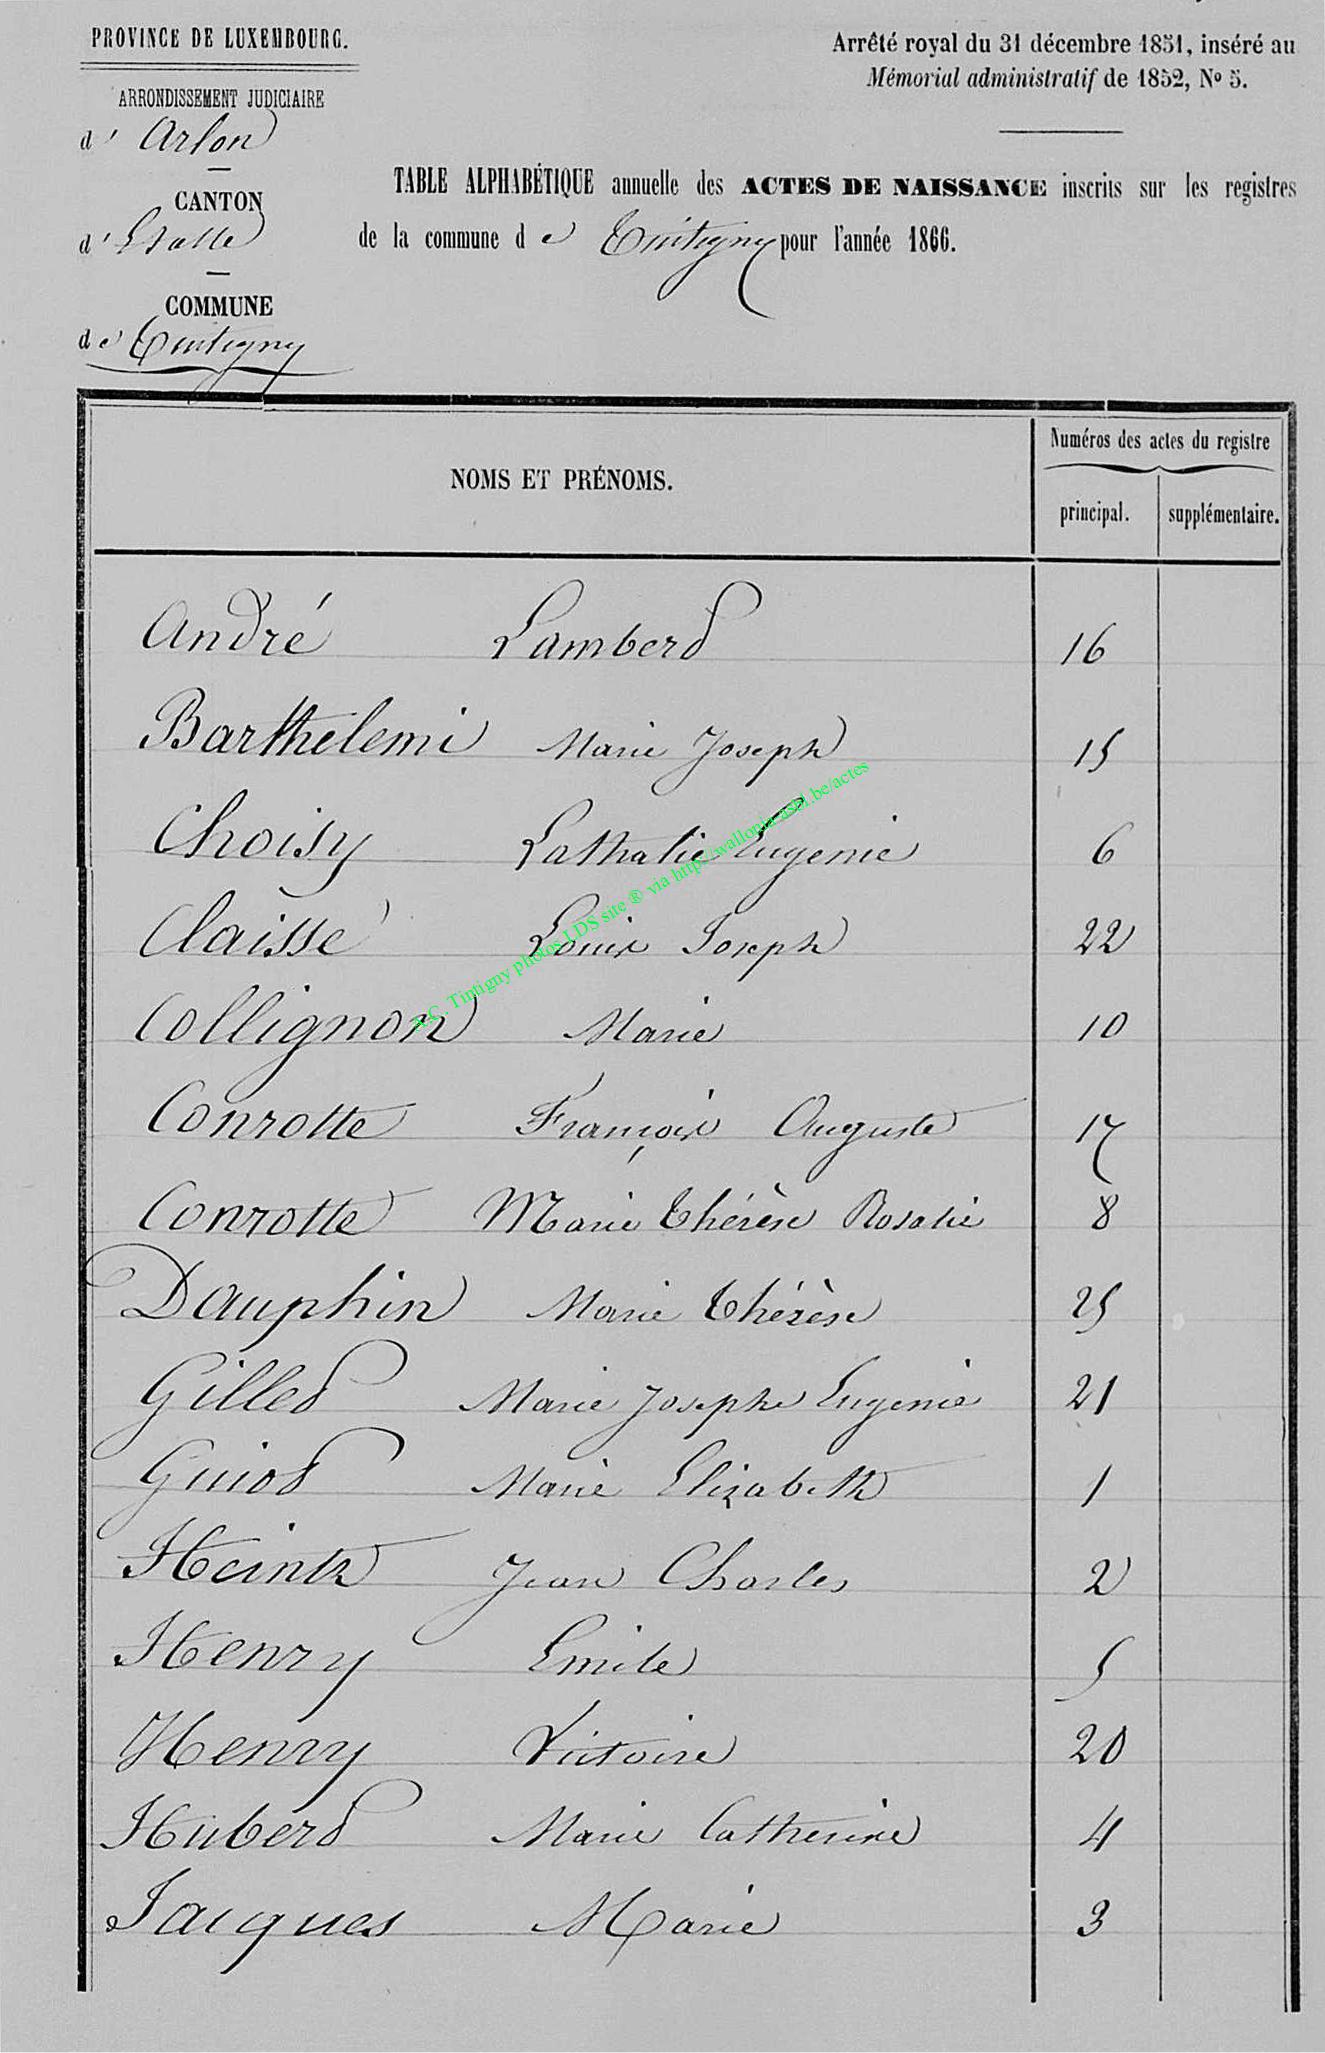 PROVINCE DE LUXEMBOURG.
Arrêté royal du 31 décembre 1851, inséré au
Mémorial administratif de 1852, Nº 5.
ARRONDISSEMENT JUDICIAIRE
d' Arlon
CANTON
d' Etalle
COMMUNE
de Tintigny
TABLE ALPHABÉTIQUE annuelle des ACTES DE NAISSANCE inscrits sur les registres
de la commune de Tintigny pour l'année 1866.
NOMS ET PRÉNOMS.
Numéros des actes du registre
principal. supplémentaire.
André Lambert 16
Barthelemi Marie Joseph 15
Choisy Nathalie Eugenie 6
Claisse Louis Joseph 22
Collignon Marie 10
Conrotte François Auguste 17
Conrotte Marie Thérèse Rosalie 8
Dauphin Marie Thérèse 25
Gilles Marie Josephe Eugenie 21
Guiot Marie Elizabeth 1
Heintz Jean Charles 2
Henry Emile 5
Henry Victoire 20
Hubert Marie Catherine 4
Jacques Marie 3
A.C. Tintigny photos LDS site ® via http://wallonia-asbl.be/actes